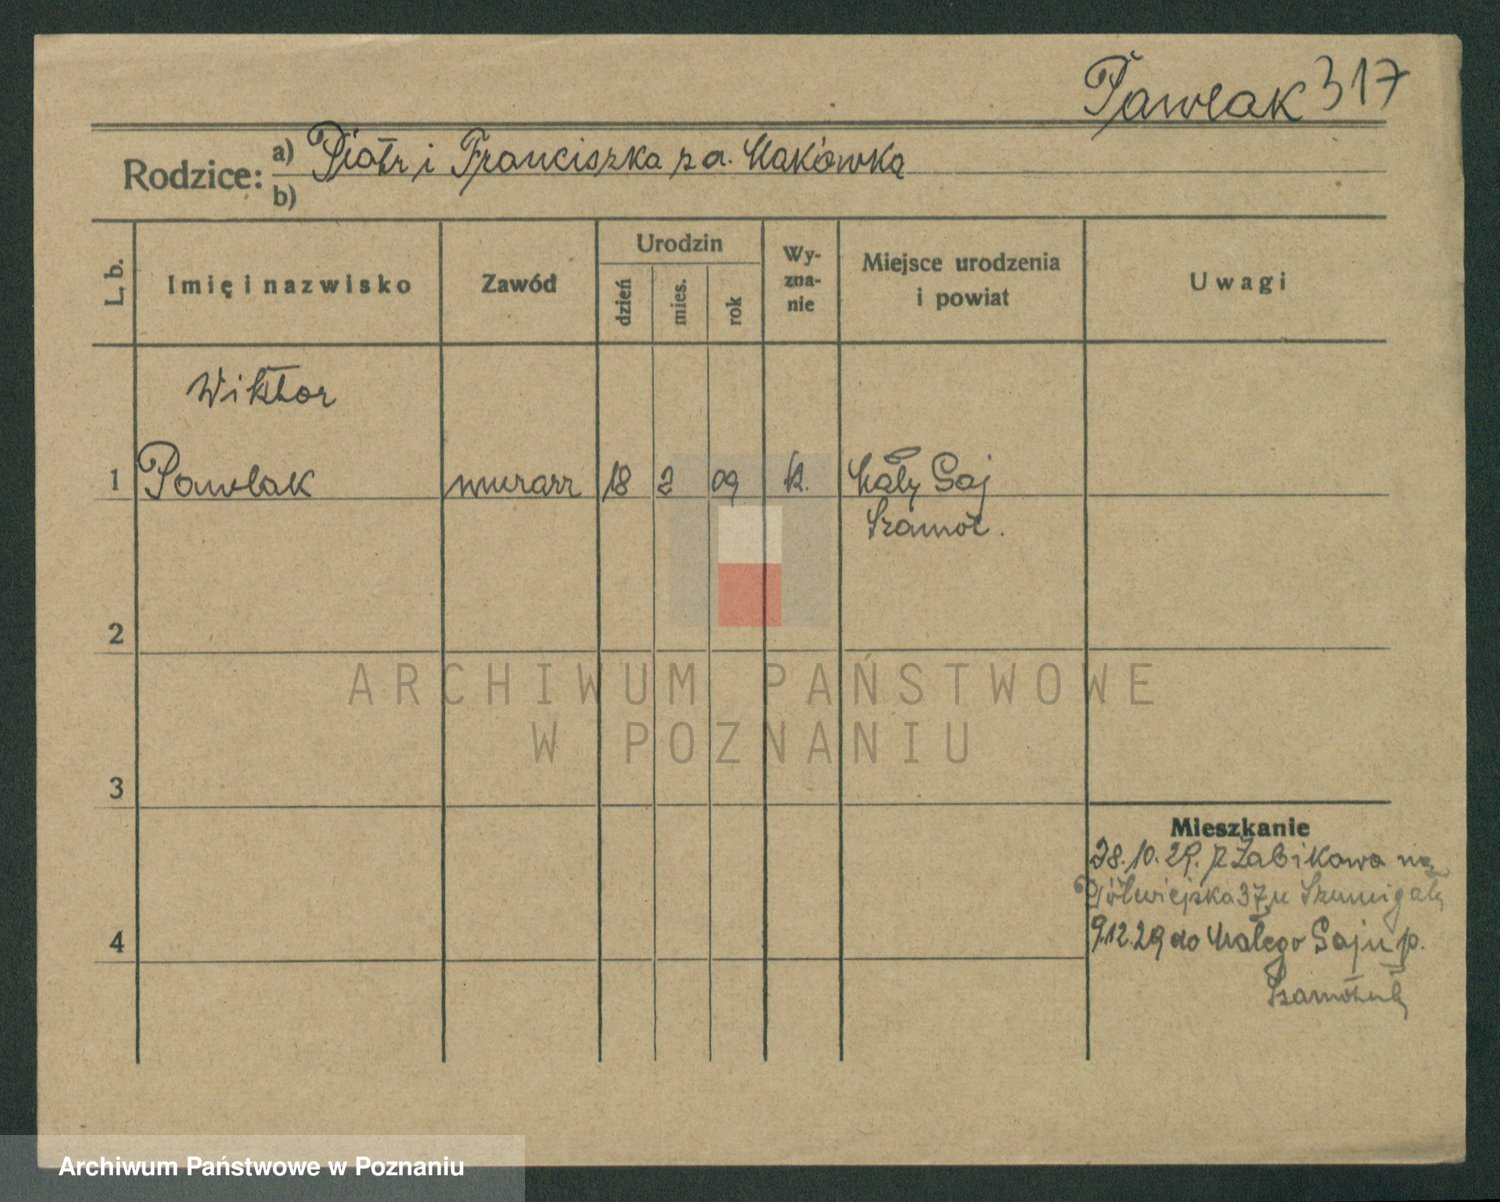 Pawlak 317
Rodzice: a) Piotr i Franciszka za. Makówka
b)
L. b.
Imię i nazwisko
Zawód
Urodzin
dzień
mies.
rok
Wy-
zna-
nie
Miejsce urodzenia
i powiat
Uwagi
Wiktor
1 Pawlak murarz 18 2 09 k. Mały Gaj
Szamot.
2
3
4
Mieszkanie
28.10.29. z Żabikowa na
Półwiejska 37 u Szumigały
9.12.29 do Małego Gaju p.
Szamotuły
ARCHIWUM PAŃSTWOWE
W POZNANIU
Archiwum Państwowe w Poznaniu